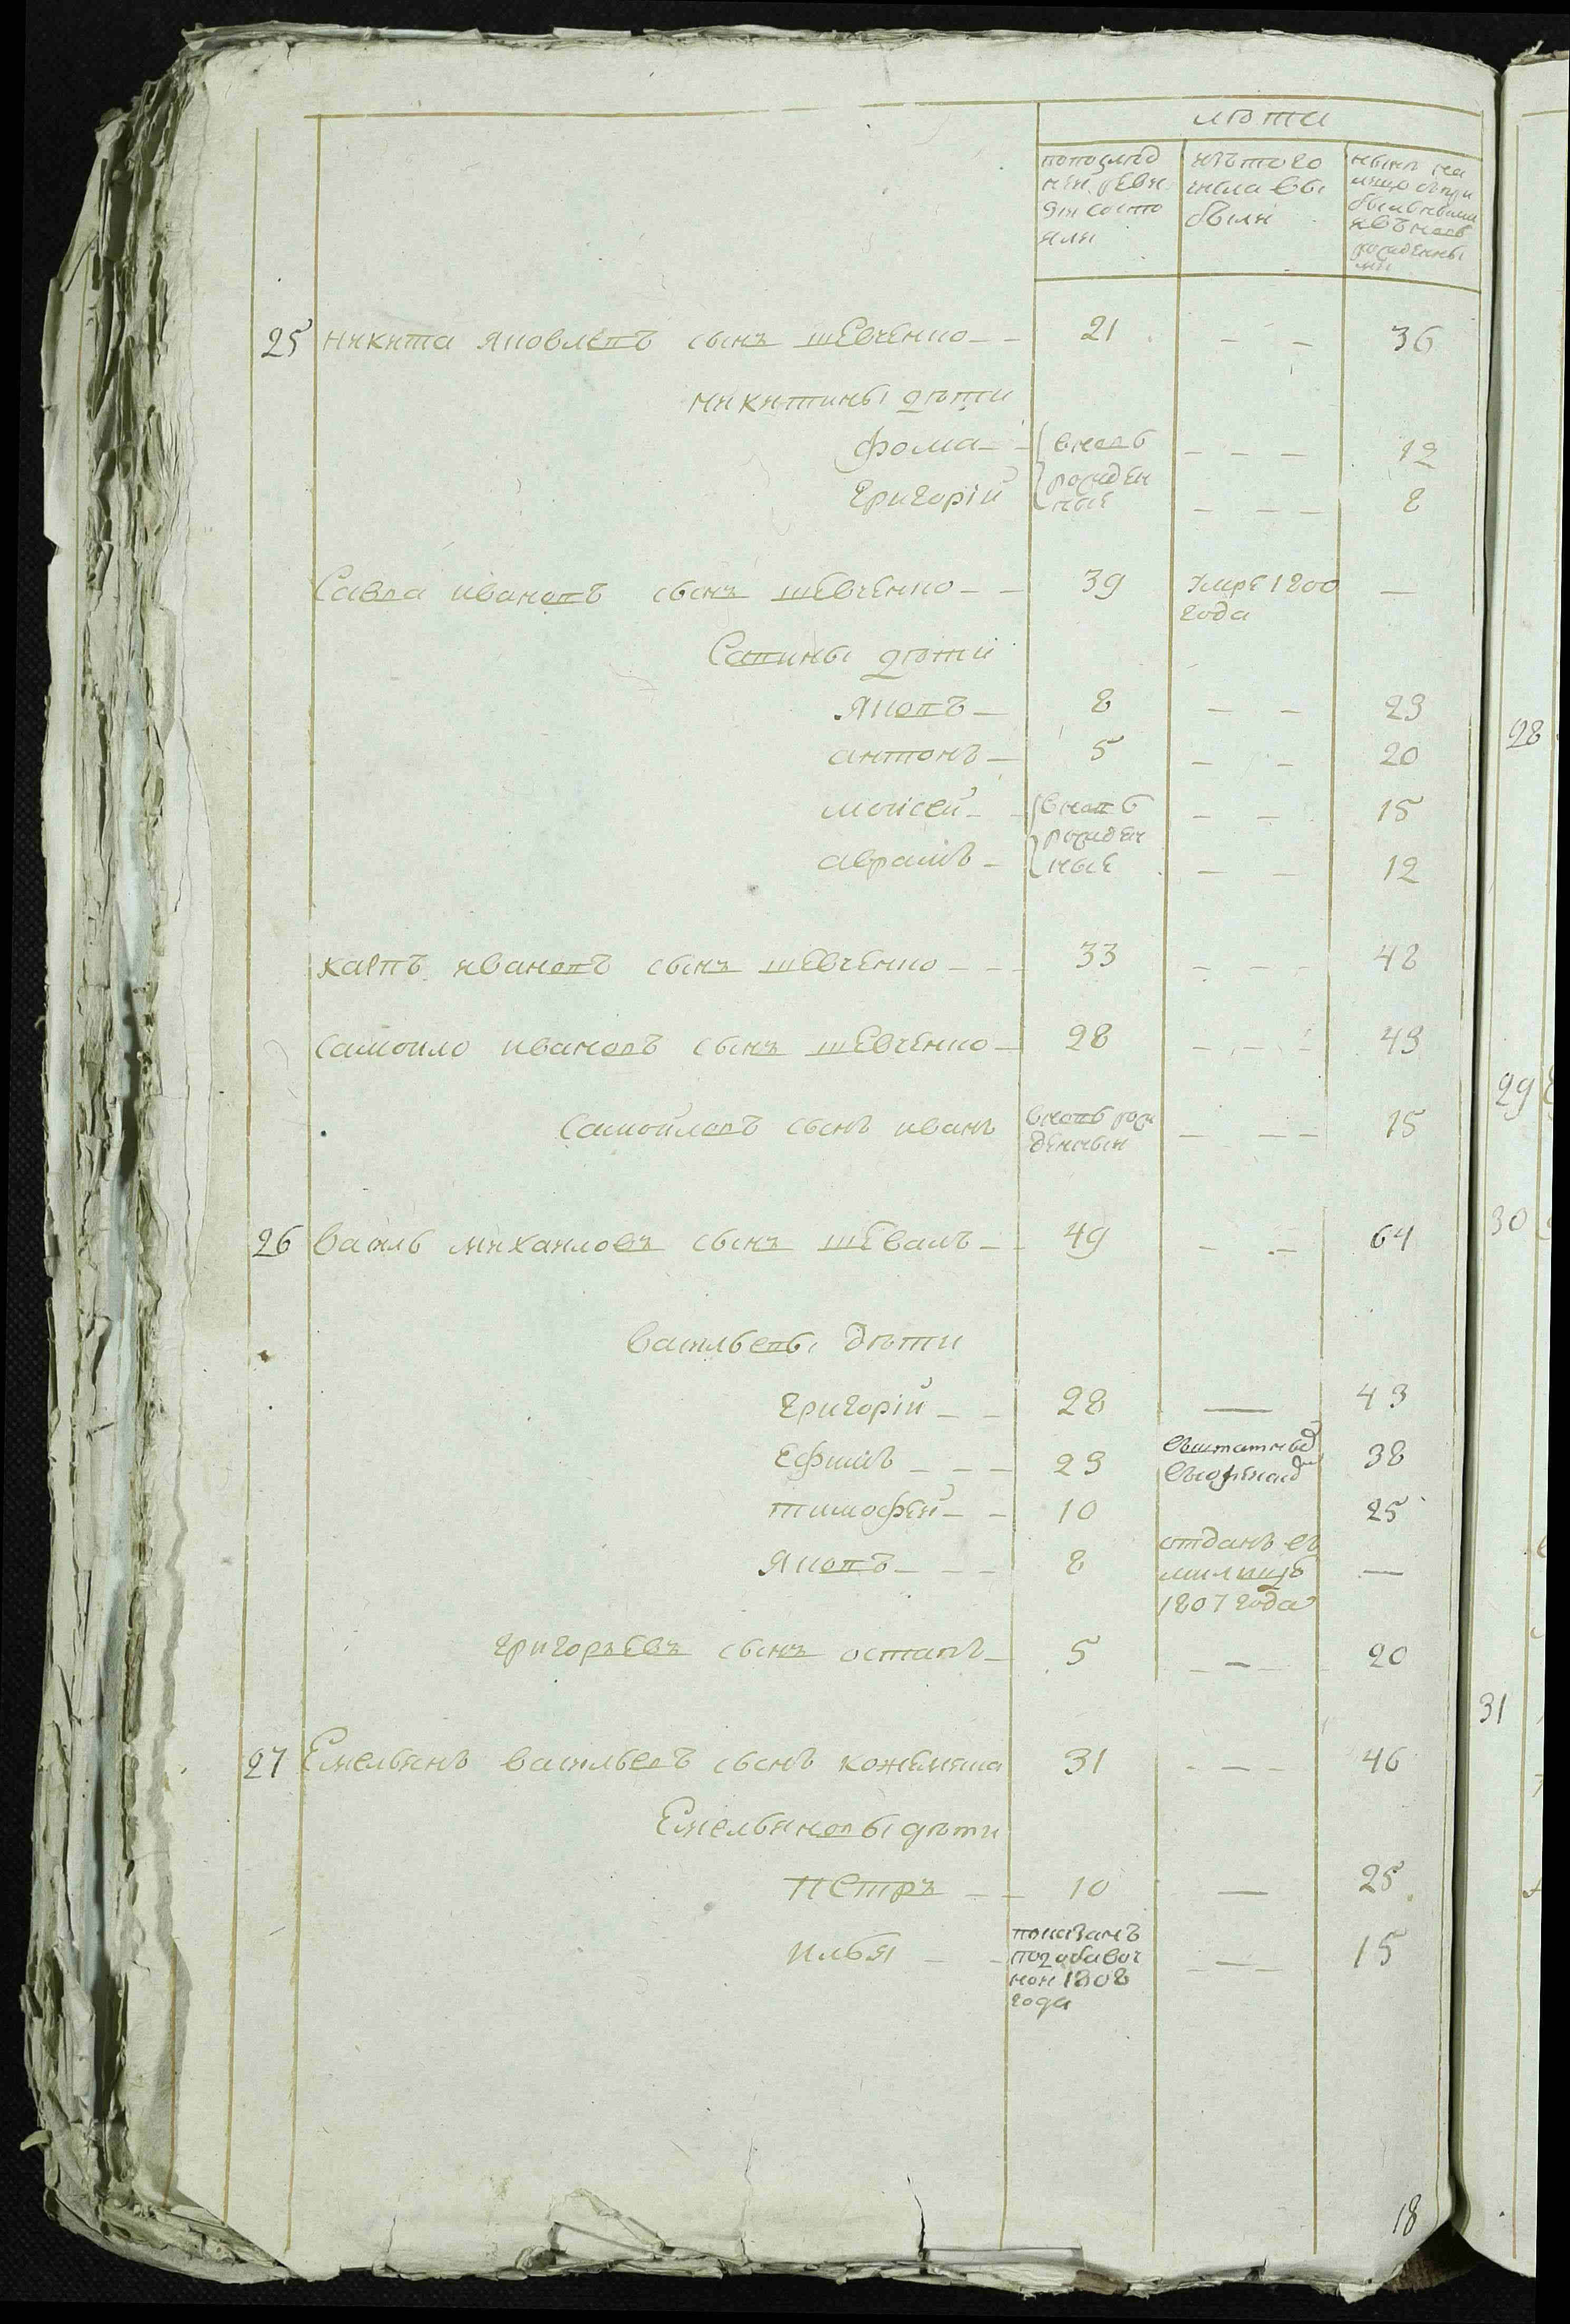 лѣта
попослѣд нѣй реви зіи состо яли
изътого числа вы были
нынѣ на лицо съпри бывшими ивъновь рожденны ми
25 никита яковлевъ сынъ шевченко 21 36
никитины дѣти
фома вновь рожден ные 12
григорій 8
Савва ивановъ сынъ шевченко 39 умре 1800 года —
Савины дѣти
яковъ 8 23
антонъ 5 20
моисей вновь рожден ные 15
аврамъ 12
карпъ ивановъ сынъ шевченко 33 48
самоило ивановъ сынъ шевченко 28 43
самойловъ сынъ иванъ вновь рож денный 15
26 василь михаиловъ сынъ шевалъ 49 64
васильевы дѣти
григорій 28 — 43
ефимъ 23 38
тимофей 10 25
яковъ 8 отданъ въ милицію 1807 года —
григорьевъ сынъ остапъ 5 20
27 Емельянъ васильевъ сынъ кожемяка 31 46
Емельяновы дѣти
петръ 10 — 25
илья показанъ подобавоч ной 1808 года 15
18
28
29
30
31